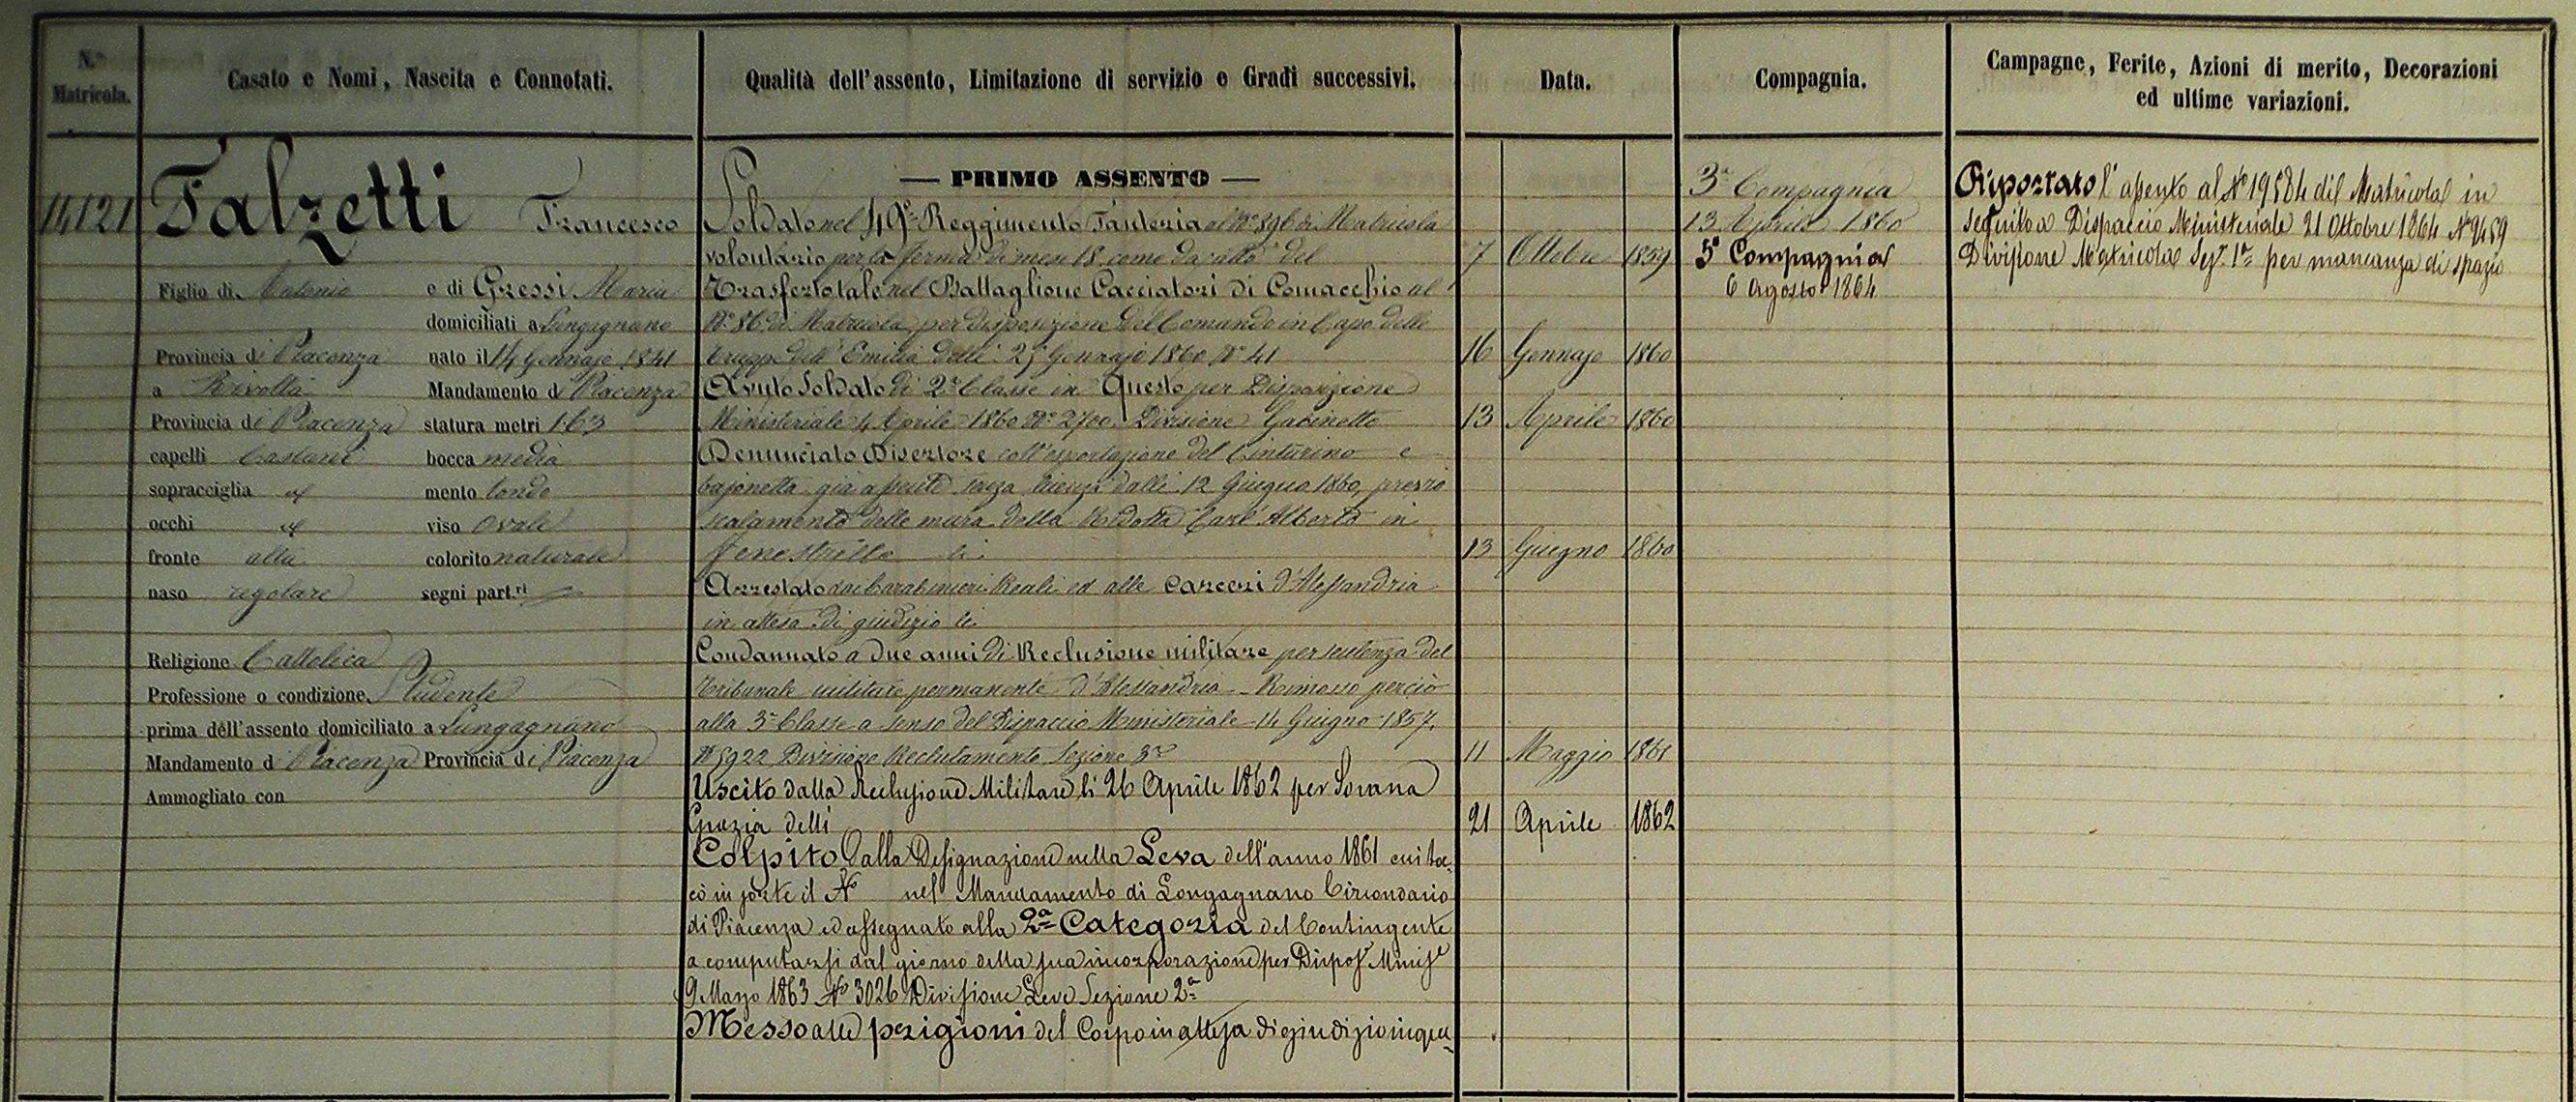 N.º Matricola.
Casato e Nomi, Nascita e Connotati.
Qualità dell'assento, Limitazione di servizio e Gradi successivi.
Data.
Compagnia.
Campagne, Ferite, Azioni di merito, Decorazioni
ed ultime variazioni.
14121
Falzetti Francesco
Figlio di Antonio e di Gressi Maria
domiciliati a Lungagnano
Provincia di Piacenza nato il 14 Gennajo 1841
a Rivolta Mandamento di Piacenza
Provincia di Piacenza statura metri 1.63
capelli Castani bocca media
sopracciglia id mento tondo
occhi id viso Ovale
fronte alta colorito naturale
naso regolare segni part.ri
Religione Cattolica
Professione o condizione Studente
prima dell'assento domiciliato a Lungagnano
Mandamento di Piacenza Provincia di Piacenza
Ammogliato con
— PRIMO ASSENTO —
Soldato nel 49º Reggimento Fanteria al Nº 896 di Matricola
volontario per la ferma di mesi 18 come da atto del 7 Ottobre 1859
Trasferto tale nel Battaglione Cacciatori di Comacchio al
Nº 86 di Matricola per disposizione del Comando in Capo delle
truppe dell'Emilia delli 25 Gennajo 1860 Nº 41 16 Gennajo 1860
Avuto Soldato di 2ª Classe in Questo per Disposizione
Ministeriale 4 Aprile 1860 Nº 2700 Divisione Gabinetto 13 Aprile 1860
Denunciato Disertore coll'esportazione del Cinturino e
bajonetta già assente senza licenza dalli 12 Giugno 1860, presso
scalamento delle mura della Ridotta Carl'Alberto in
Fenestrelle li 13 Giugno 1860
Arrestato dai Carabinieri Reali ed alle carceri d'Alessandria
in attesa di giudizio li
Condannato a due anni di Reclusione militare per sentenza del
Tribunale militare permanente d'Alessandria - Rimosso perciò
alla 3ª Classe a senso del Dispaccio Ministeriale 14 Giugno 1857,
Nº 5922 Divisione Reclutamento Sezione 3ª 11 Maggio 1861
Uscito dalla Reclusione Militare li 26 Aprile 1862 per Sovrana
Grazia delli 21 Aprile 1862
Colpito dalla Designazione nella Leva dell'anno 1861 cui toc-
cò in sorte il Nº nel Mandamento di Longagnano Circondario
di Piacenza ed assegnato alla 2ª Categoria del Contingente
a computarsi dal giorno della sua incorporazione per Dispos.e Minis.le
9 Marzo 1863 Nº 3026 Divisione Leve Sezione 2ª
Messo alle prigioni del Corpo in attesa di giudizio inqui-
3ª Compagnia
13 Aprile 1860
5ª Compagnia
6 Agosto 1864
Riportato l'assento al Nº 19584 del Matricola in
seguito a Dispaccio Ministeriale 21 Ottobre 1864 Nº 9459
Divisione Matricola Sez.e 1ª per mancanza di spazio